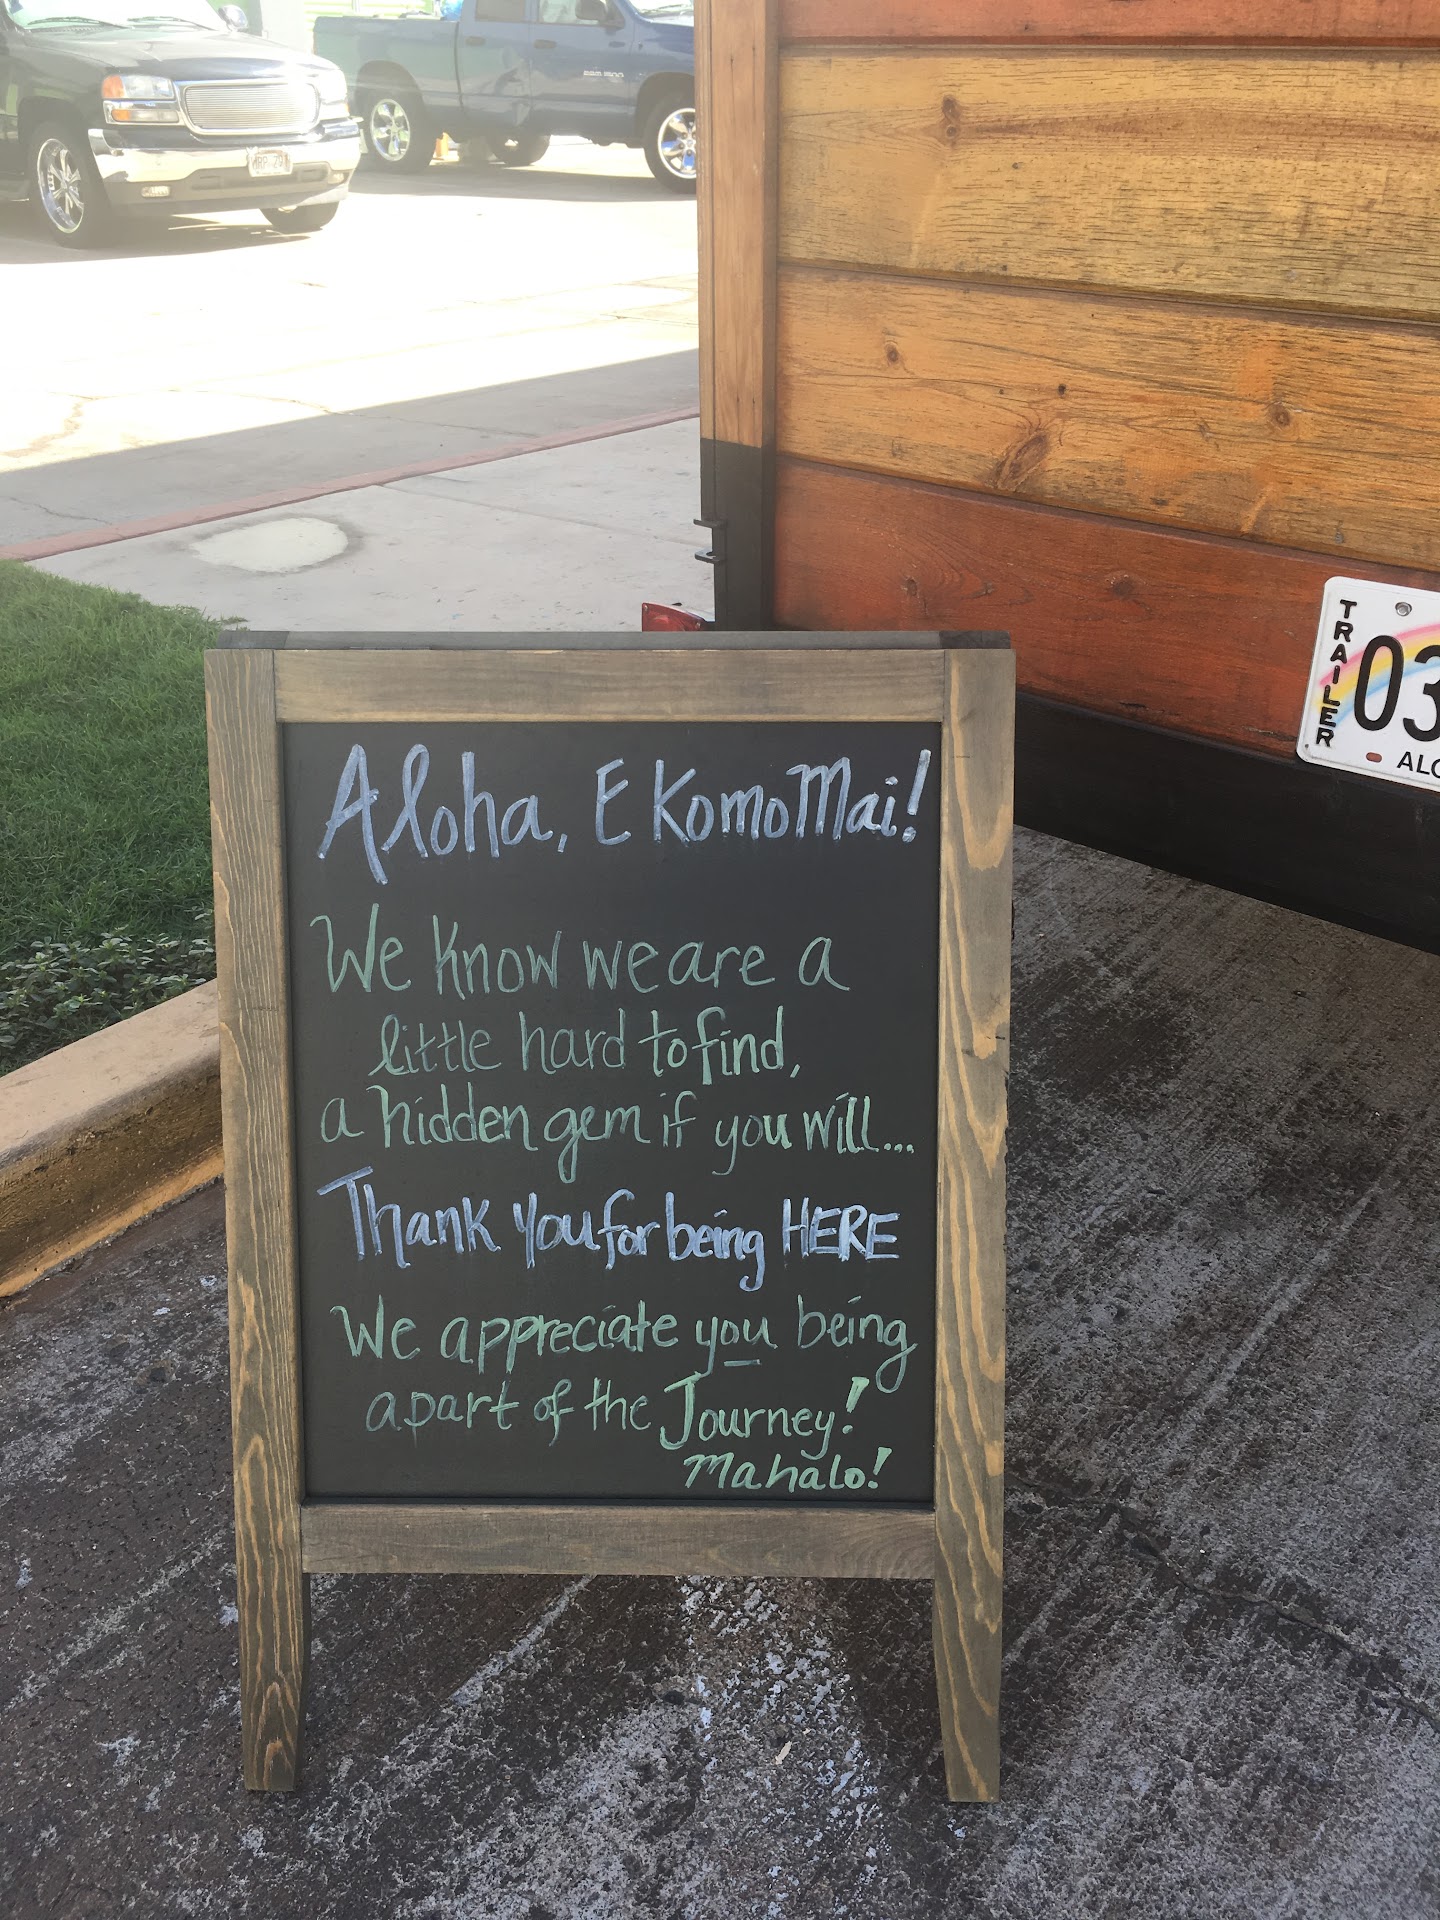 Aloha, E Komo Mai!
We know we are a
little hard to find,
a hidden gem if you will...
Thank you for being HERE
We appreciate you being
apart of the Journey!
Mahalo!
TRAILER
03